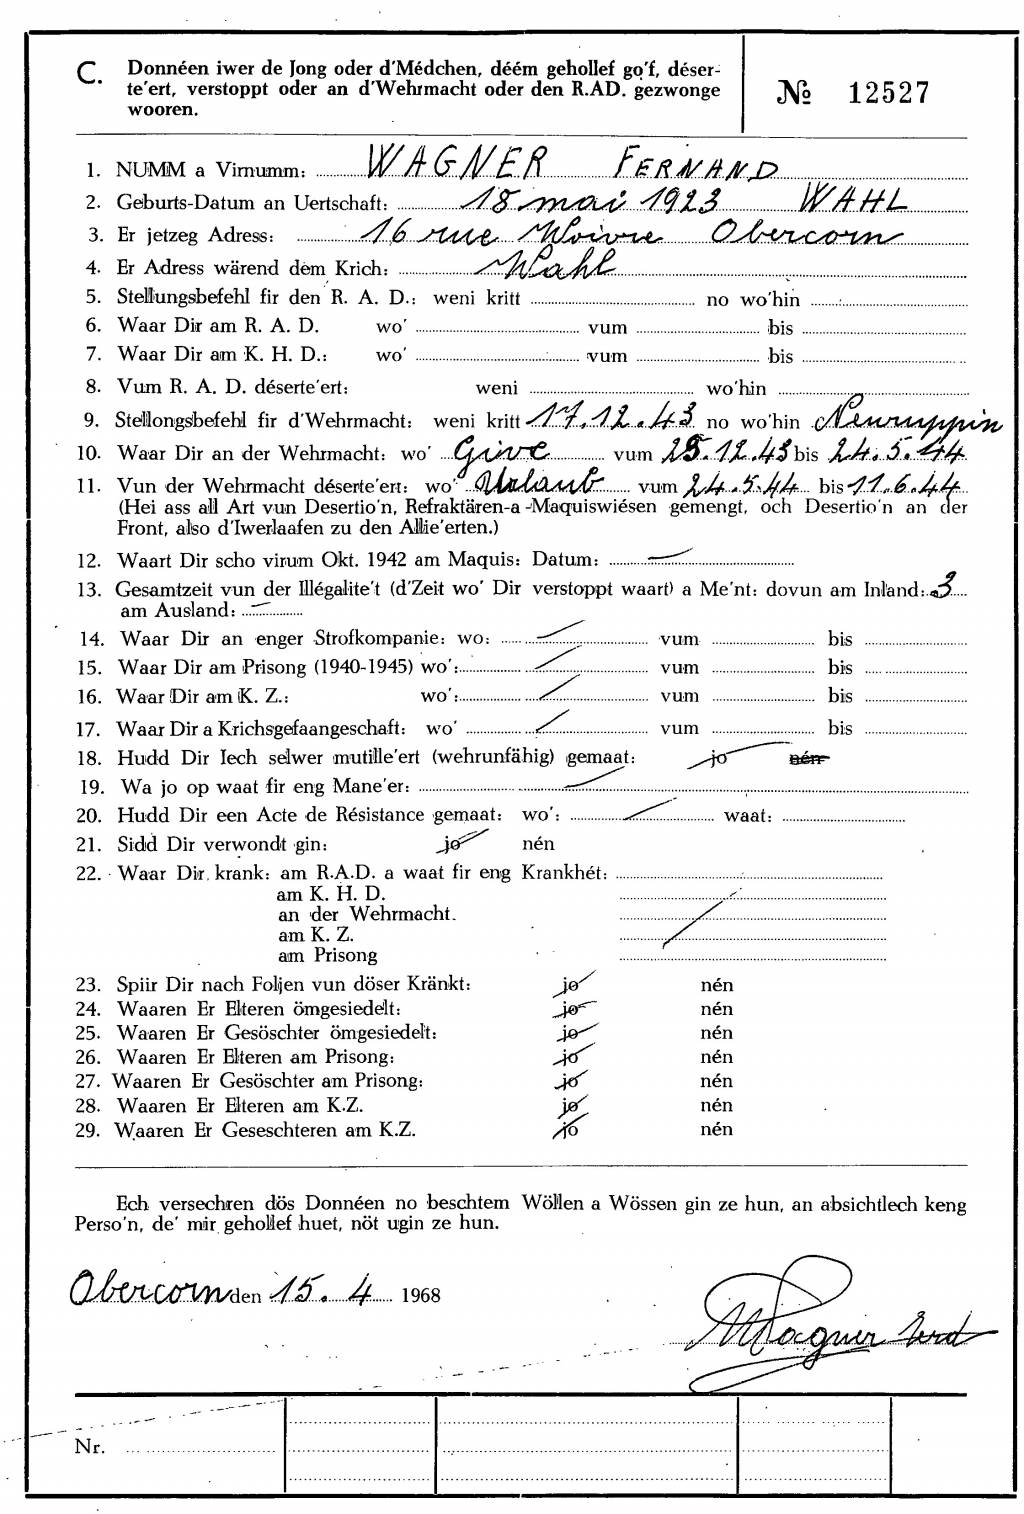 C. Donnéen iwer de Jong oder d'Médchen, déém gehollef go'f, déser-
te'ert, verstoppt oder an d'Wehrmacht oder den R.AD. gezwonge
wooren.
№ 12527
1. NUMM a Virnumm: WAGNER FERNAND
2. Geburts-Datum an Uertschaft: 18 mai 1923 WAHL
3. Er jetzeg Adress: 16 rue Woivre Obercorn
4. Er Adress wärend dem Krich: Wahl
5. Stellungsbefehl fir den R. A. D.: weni kritt no wo'hin
6. Waar Dir am R. A. D. wo' vum bis
7. Waar Dir am K. H. D.: wo' vum bis
8. Vum R. A. D. déserte'ert: weni wo'hin
9. Stellongsbefehl fir d'Wehrmacht: weni kritt 17.12.43 no wo'hin Neuruppin
10. Waar Dir an der Wehrmacht: wo' Give vum 25.12.43 bis 24.5.44
11. Vun der Wehrmacht déserte'ert: wo' Urlaub vum 24.5.44 bis 11.6.44
(Hei ass all Art vun Desertio'n, Refraktären-a -Maquiswiésen gemengt, och Desertio'n an der
Front, also d'Iwerlaafen zu den Allie'erten.)
12. Waart Dir scho virum Okt. 1942 am Maquis: Datum: —
13. Gesamtzeit vun der Illégalite't (d'Zeit wo' Dir verstoppt waart) a Me'nt: dovun am Inland: 3
am Ausland: —
14. Waar Dir an enger Strofkompanie: wo: vum bis
15. Waar Dir am Prisong (1940-1945) wo': vum bis
16. Waar Dir am K. Z.: wo': vum bis
17. Waar Dir a Krichsgefaangeschaft: wo' vum bis
18. Hudd Dir Iech selwer mutille'ert (wehrunfähig) gemaat: jo nén
19. Wa jo op waat fir eng Mane'er:
20. Hudd Dir een Acte de Résistance gemaat: wo': waat:
21. Sidd Dir verwondt gin: jo nén
22. Waar Dir krank: am R.A.D. a waat fir eng Krankhét:
am K. H. D.
an der Wehrmacht.
am K. Z.
am Prisong
23. Spiir Dir nach Foljen vun döser Kränkt: jo nén
24. Waaren Er Elteren ömgesiedelt: jo nén
25. Waaren Er Gesöschter ömgesiedelt: jo nén
26. Waaren Er Elteren am Prisong: jo nén
27. Waaren Er Gesöschter am Prisong: jo nén
28. Waaren Er Elteren am K.Z. jo nén
29. Waaren Er Geseschteren am K.Z. jo nén
Ech versechren dös Donnéen no beschtem Wöllen a Wössen gin ze hun, an absichtlech keng
Perso'n, de' mir gehollef huet, nöt ugin ze hun.
Obercorn den 15. 4 1968
Wagner Ferd
Nr.